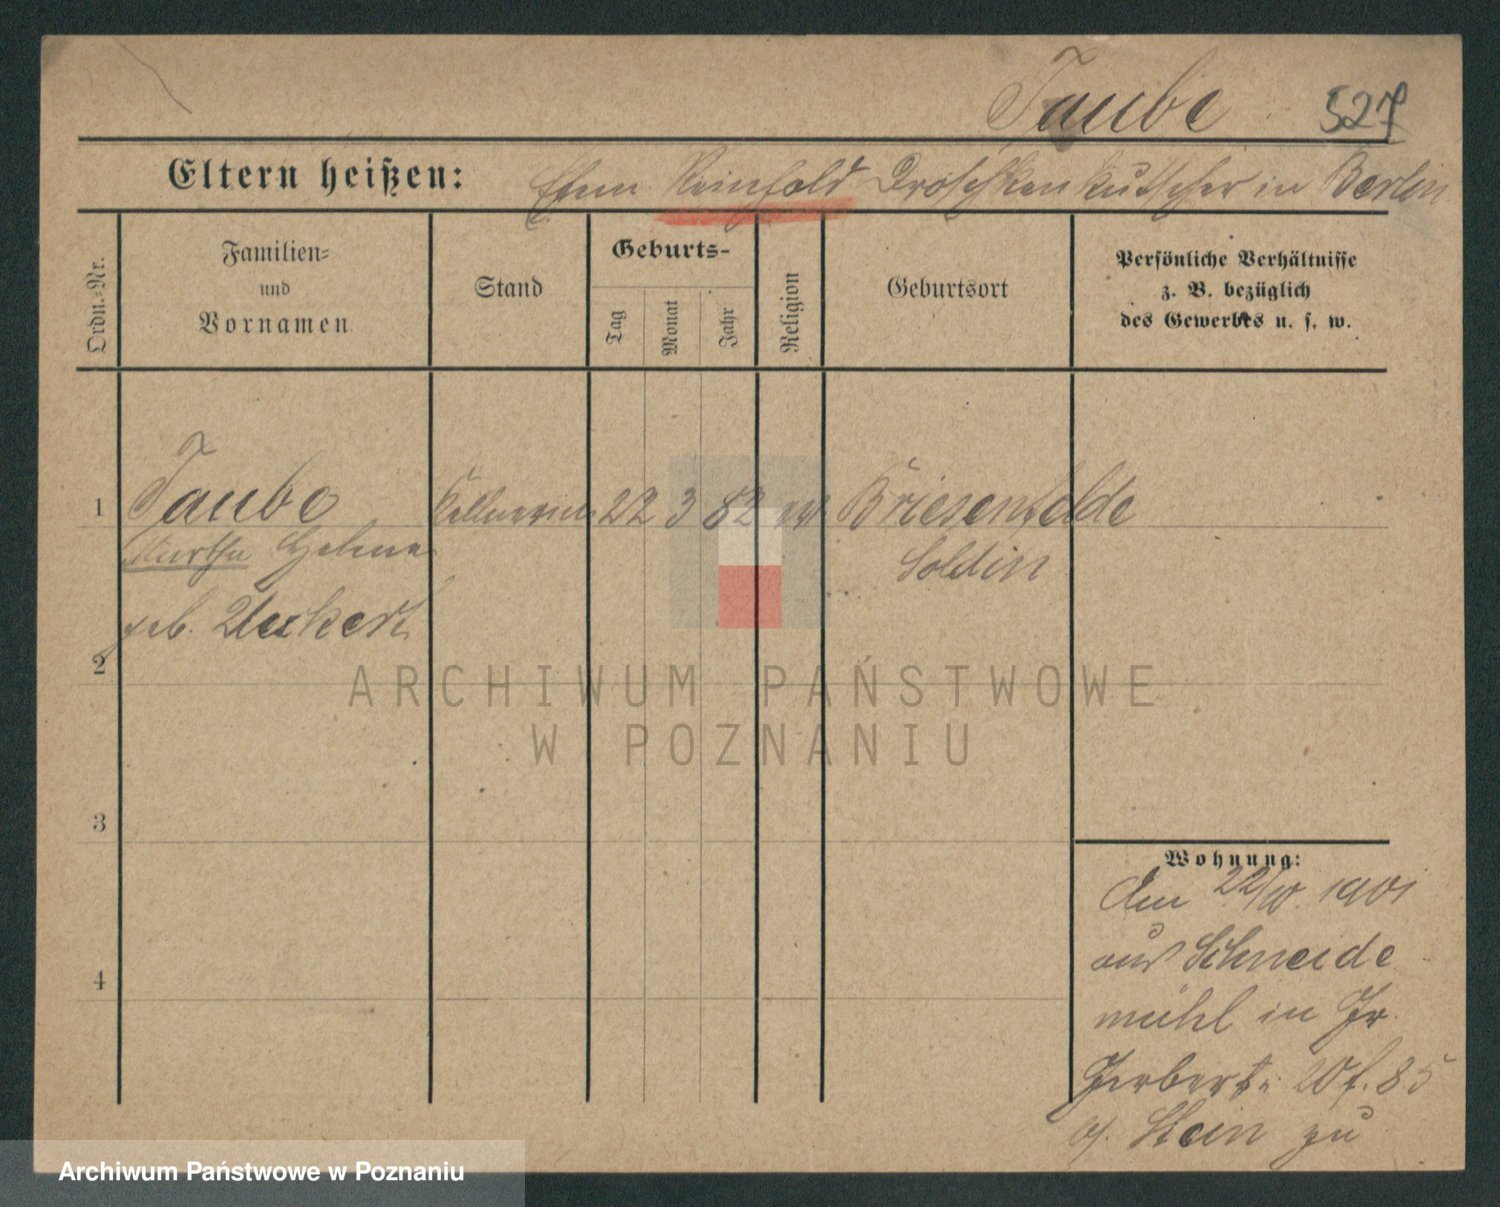 Taube 527
Eltern heißen: Ehem. Reinhold Droschkenkutscher in Berlin
Ordn.-Nr.
Familien-
und
Vornamen
Stand
Geburts-
Tag
Monat
Jahr
Religion
Geburtsort
Persönliche Verhältnisse
z. B. bezüglich
des Gewerbes u. s. w.
1 Taube Kellnerin 22 3 82 ev Briesenfelde
Martha Helene Soldin
geb. Ueckert
2
3
4
Wohnung:
Am 22/10. 1901
aus Schneide
mühl in Gr.
Gerberst. 20 f. 85
b/. Stein zu
ARCHIWUM PAŃSTWOWE
W POZNANIU
Archiwum Państwowe w Poznaniu